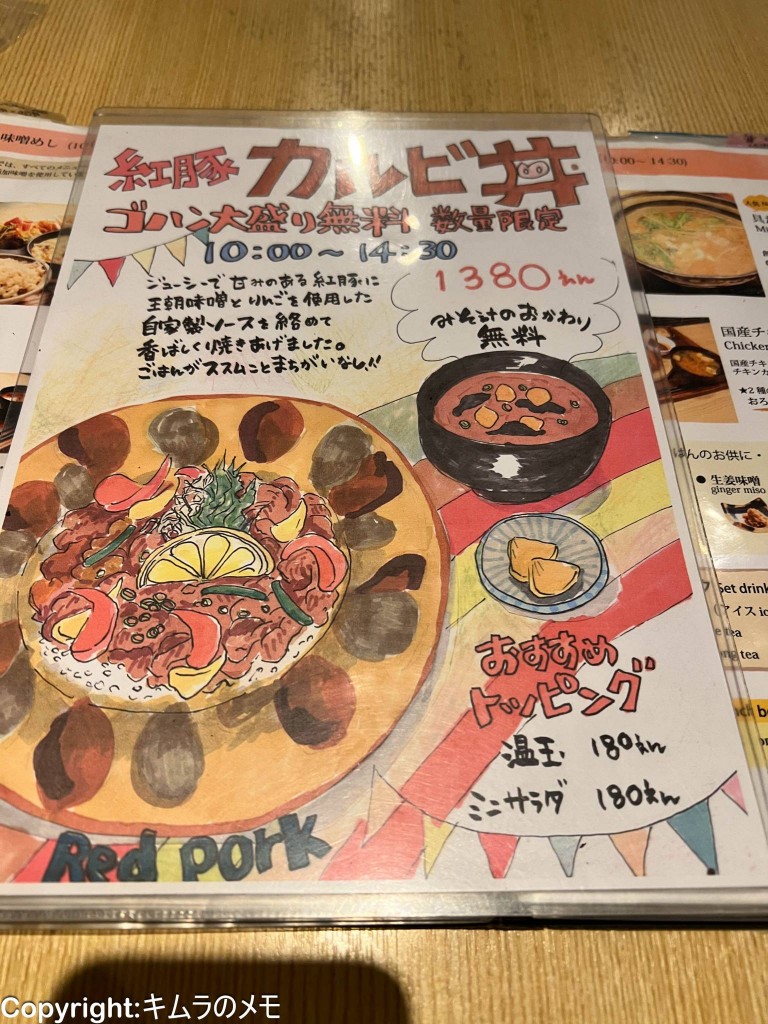 紅豚 カルビ丼
ゴハン大盛り無料 数量限定
10:00～14:30
ジューシーで甘みのある紅豚に
王朝味噌とりんごを使用した
自家製ソースを絡めて
香ばしく焼きあげました。
ごはんがススムことまちがいなし!!
1380えん
みそ汁のおかわり
無料
おすすめ
トッピング
温玉 180えん
ミニサラダ 180えん
Red pork
味噌めし
0:00～14:30)
国産チキ
Chicken
国産チキ
チキンカ
★2種の
おろ
んのお供に・
● 生姜味噌
ginger miso
Set drink
(アイス ic
tea
tea
Copyright:キムラのメモ